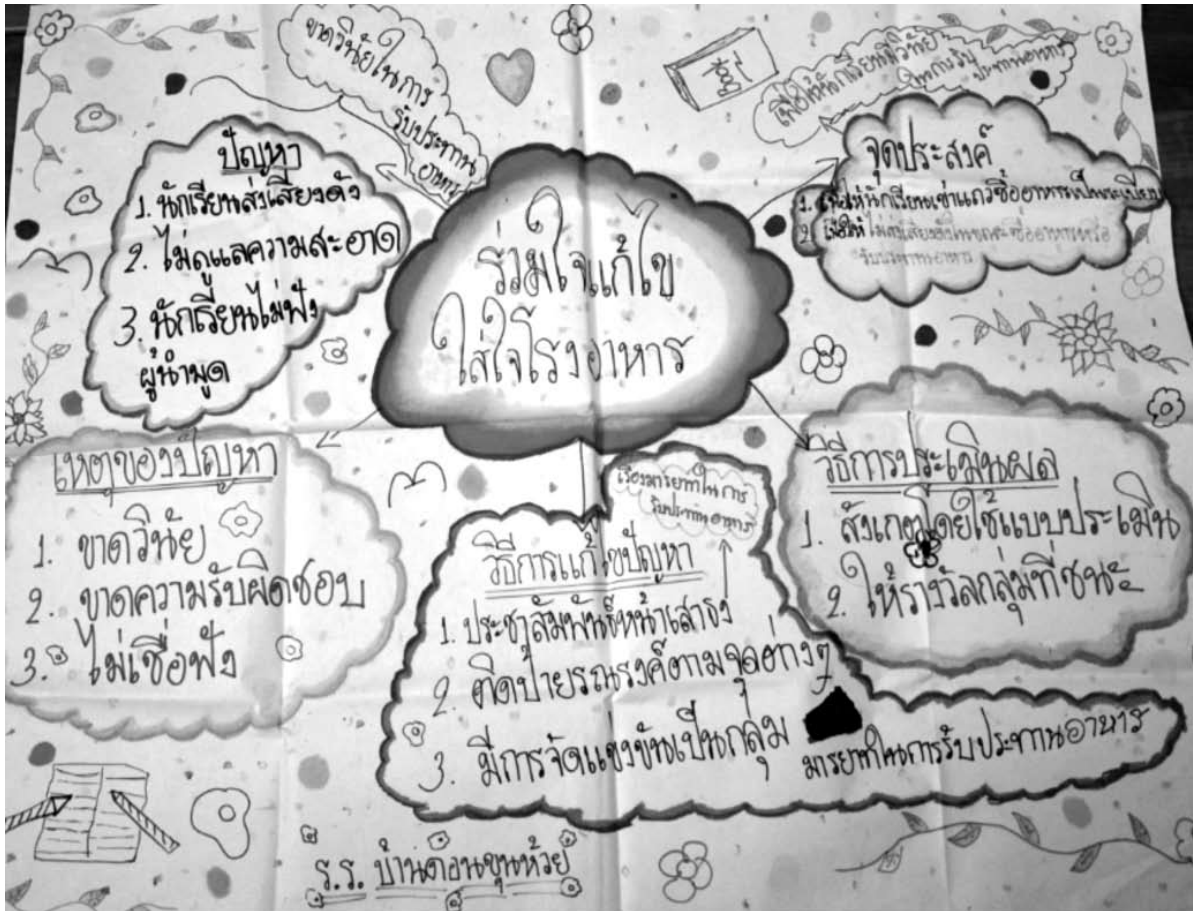 ขาดวินัยในการ
รับประทาน
อาหาร
เพื่อให้นักเรียนมีวินัย
ในการรับ
ประทานอาหาร
ปัญหา
1. นักเรียนส่งเสียงดัง
2. ไม่ดูแลความสะอาด
3. นักเรียนไม่ฟัง
ผู้นำพูด
ร่วมใจแก้ไข
ใส่ใจโรงอาหาร
จุดประสงค์
1. เพื่อให้นักเรียนเข้าแถวซื้ออาหารเป็นระเบียบ
2. เพื่อให้ไม่ส่งเสียงดังในขณะซื้ออาหารหรือ
รับประทานอาหาร
เหตุของปัญหา
1. ขาดวินัย
2. ขาดความรับผิดชอบ
3. ไม่เชื่อฟัง
เรื่องมารยาทในการ
รับประทานอาหาร
วิธีการแก้ไขปัญหา
1. ประชาสัมพันธ์หน้าเสาธง
2. ติดป้ายรณรงค์ตามจุดต่างๆ
3. มีการจัดแข่งขันเป็นกลุ่ม
มารยาทในการรับประทานอาหาร
วิธีการประเมินผล
1. สังเกตโดยใช้แบบประเมิน
2. ให้รางวัลกลุ่มที่ชนะ
ร.ร. บ้านดอนขุนห้วย